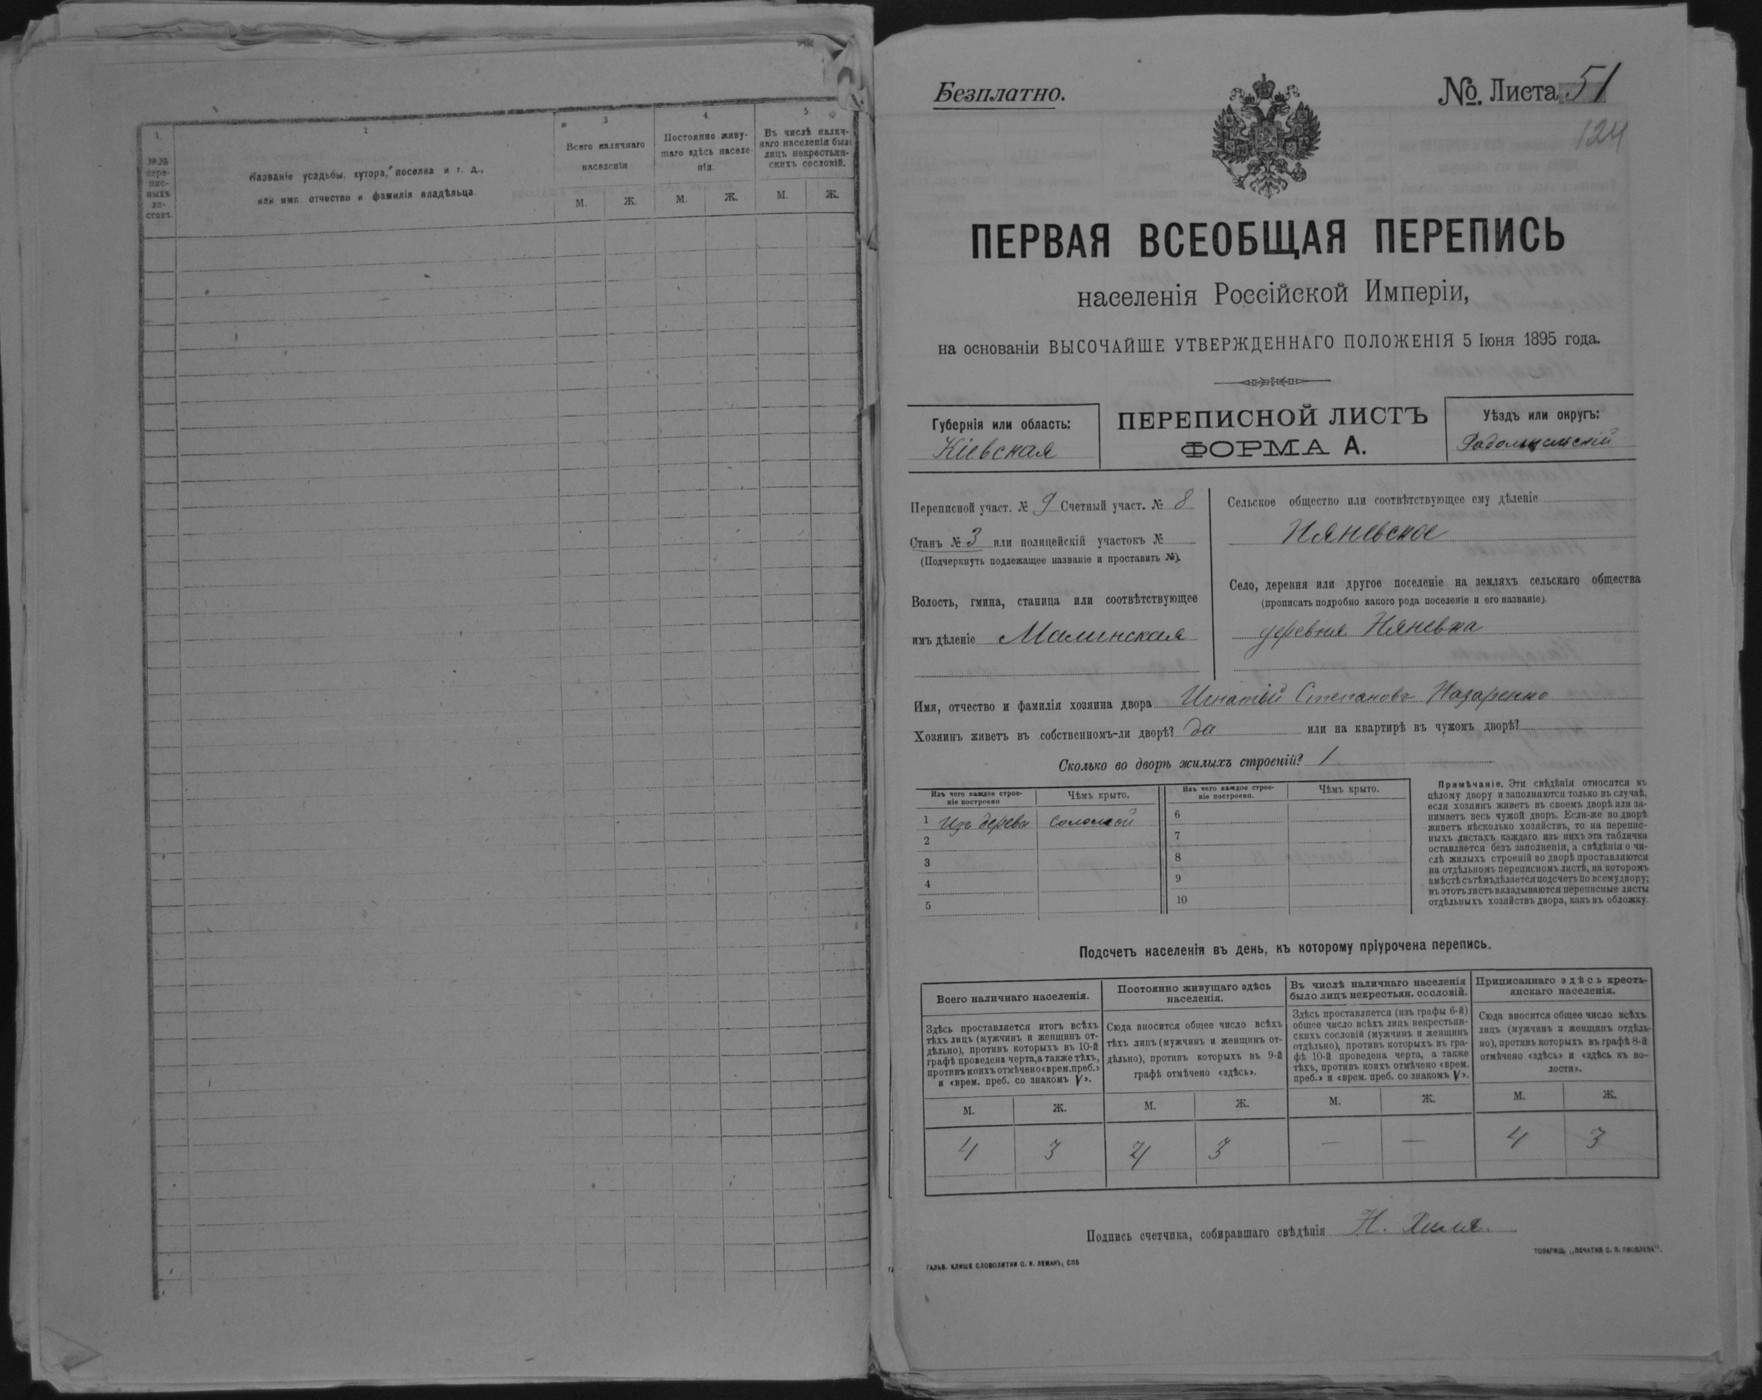 1
2
3
4
5
№№ пере-
пис-
ныхъ
ли-
стовъ.
Названіе усадьбы, хутора, поселка и т. д.,
или имя, отчество и фамилія владѣльца
Всего наличнаго
населенія
Постоянно живу-
щаго здѣсь населе-
нія.
Въ числѣ налич-
наго населенія было
лицъ некрестьян-
скихъ сословій.
М. Ж. М. Ж. М. Ж.
Безплатно.
№. Листа 51
124
ПЕРВАЯ ВСЕОБЩАЯ ПЕРЕПИСЬ
населенія Россійской Имперіи,
на основаніи ВЫСОЧАЙШЕ УТВЕРЖДЕННАГО ПОЛОЖЕНІЯ 5 Іюня 1895 года.
Губернія или область:
Кіевская
ПЕРЕПИСНОЙ ЛИСТЪ
ФОРМА А.
Уѣздъ или округъ:
Радомысльскій
Переписной участ. № 9 Счетный участ. № 8
Станъ № 3 или полицейскій участокъ №
(Подчеркнуть подлежащее названіе и проставить №).
Волость, гмина, станица или соотвѣтствующее
имъ дѣленіе Малинская
Сельское общество или соотвѣтствующее ему дѣленіе
Няневское
Село, деревня или другое поселеніе на земляхъ сельскаго общества
(прописать подробно какого рода поселеніе и его названіе).
деревня Няневка
Имя, отчество и фамилія хозяина двора Игнатій Степановъ Назаренко
Хозяинъ живетъ въ собственномъ-ли дворѣ? да или на квартирѣ въ чужомъ дворѣ?
Сколько во дворѣ жилыхъ строеній? 1
Изъ чего каждое строе-
ніе построено
Чѣмъ крыто.
Изъ чего каждое строе-
ніе построено.
Чѣмъ крыто.
1 Изъ дерева соломой
2
3
4
5
6
7
8
9
10
Примѣчаніе. Эти свѣдѣнія относятся къ
цѣлому двору и заполняются только въ случаѣ,
если хозяинъ живетъ въ своемъ дворѣ или за-
нимаетъ весь чужой дворъ. Если-же во дворѣ
живетъ нѣсколько хозяйствъ, то на перепис-
ныхъ листахъ каждаго изъ нихъ эта табличка
оставляется безъ заполненія, а свѣдѣнія о чи-
слѣ жилыхъ строеній во дворѣ проставляются
на отдѣльномъ переписномъ листѣ, на которомъ
вмѣстѣ съ тѣмъ дѣлается подсчетъ по всему двору;
въ этотъ листъ вкладываются переписные листы
отдѣльныхъ хозяйствъ двора, какъ въ обложку.
Подсчетъ населенія въ день, къ которому пріурочена перепись.
Всего наличнаго населенія.
Здѣсь проставляется итогъ всѣхъ
тѣхъ лицъ (мужчинъ и женщинъ от-
дѣльно), противъ которыхъ въ 10-й
графѣ проведена черта, а также тѣхъ,
противъ коихъ отмѣчено «врем. преб.»
и «врем. преб. со знакомъ V».
Постоянно живущаго здѣсь
населенія.
Сюда вносится общее число всѣхъ
тѣхъ лицъ (мужчинъ и женщинъ от-
дѣльно), противъ которыхъ въ 9-й
графѣ отмѣчено «здѣсь».
Въ числѣ наличнаго населенія
было лицъ некрестьян. сословій.
Здѣсь проставляется (изъ графы 6-й)
общее число всѣхъ лицъ некрестьян-
скихъ сословій (мужчинъ и женщинъ
отдѣльно), противъ которыхъ въ гра-
фѣ 10-й проведена черта, а также
тѣхъ, противъ коихъ отмѣчено «врем.
преб.» и «врем. преб. со знакомъ V».
Приписаннаго здѣсь кресть-
янскаго населенія.
Сюда вносится общее число всѣхъ
лицъ (мужчинъ и женщинъ отдѣль-
но), противъ которыхъ въ графѣ 8-й
отмѣчено «здѣсь» и «здѣсь къ во-
лости».
М. Ж. М. Ж. М. Ж. М. Ж.
4 3 4 3 — — 4 3
Подпись счетчика, собиравшаго свѣдѣнія Н.
ГАЛЬВ. КЛИШЕ СЛОВОЛИТНИ О. И. ЛЕМАНЪ, СПБ
ТОВАРИЩ. „ПЕЧАТНЯ С. П. ЯКОВЛЕВА“.